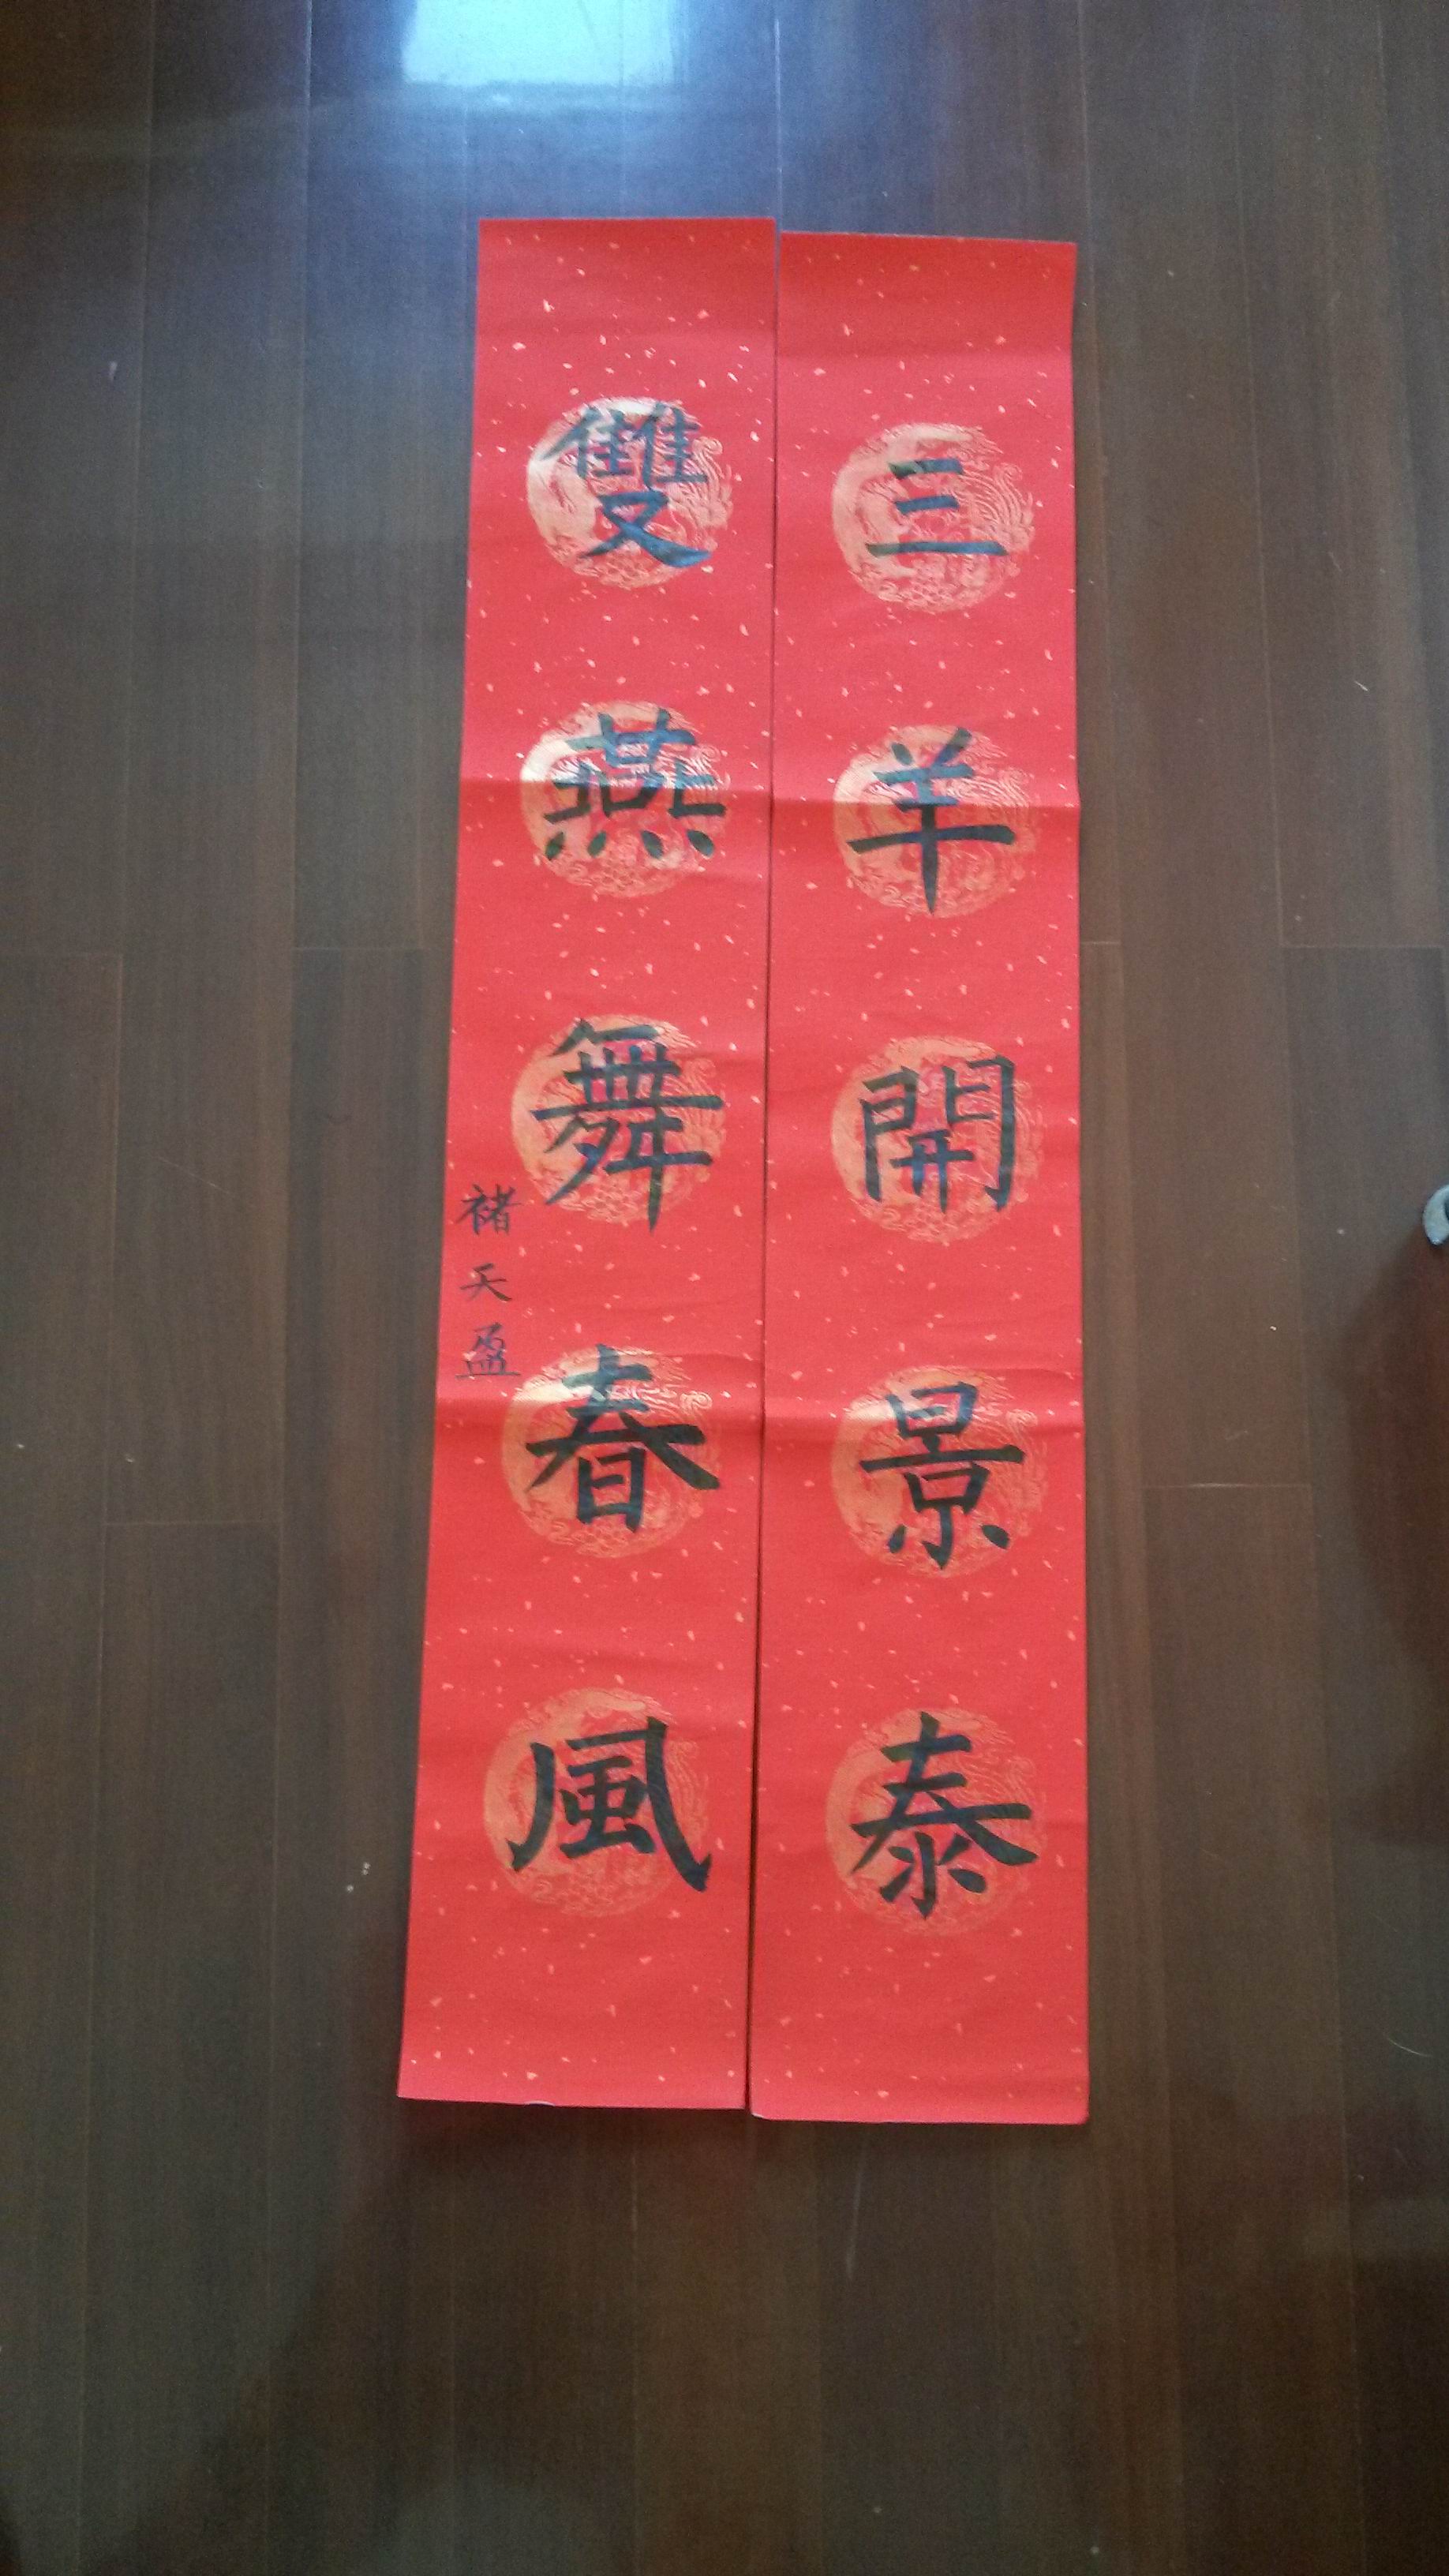 三羊開景泰
雙燕舞春風
褚天盈